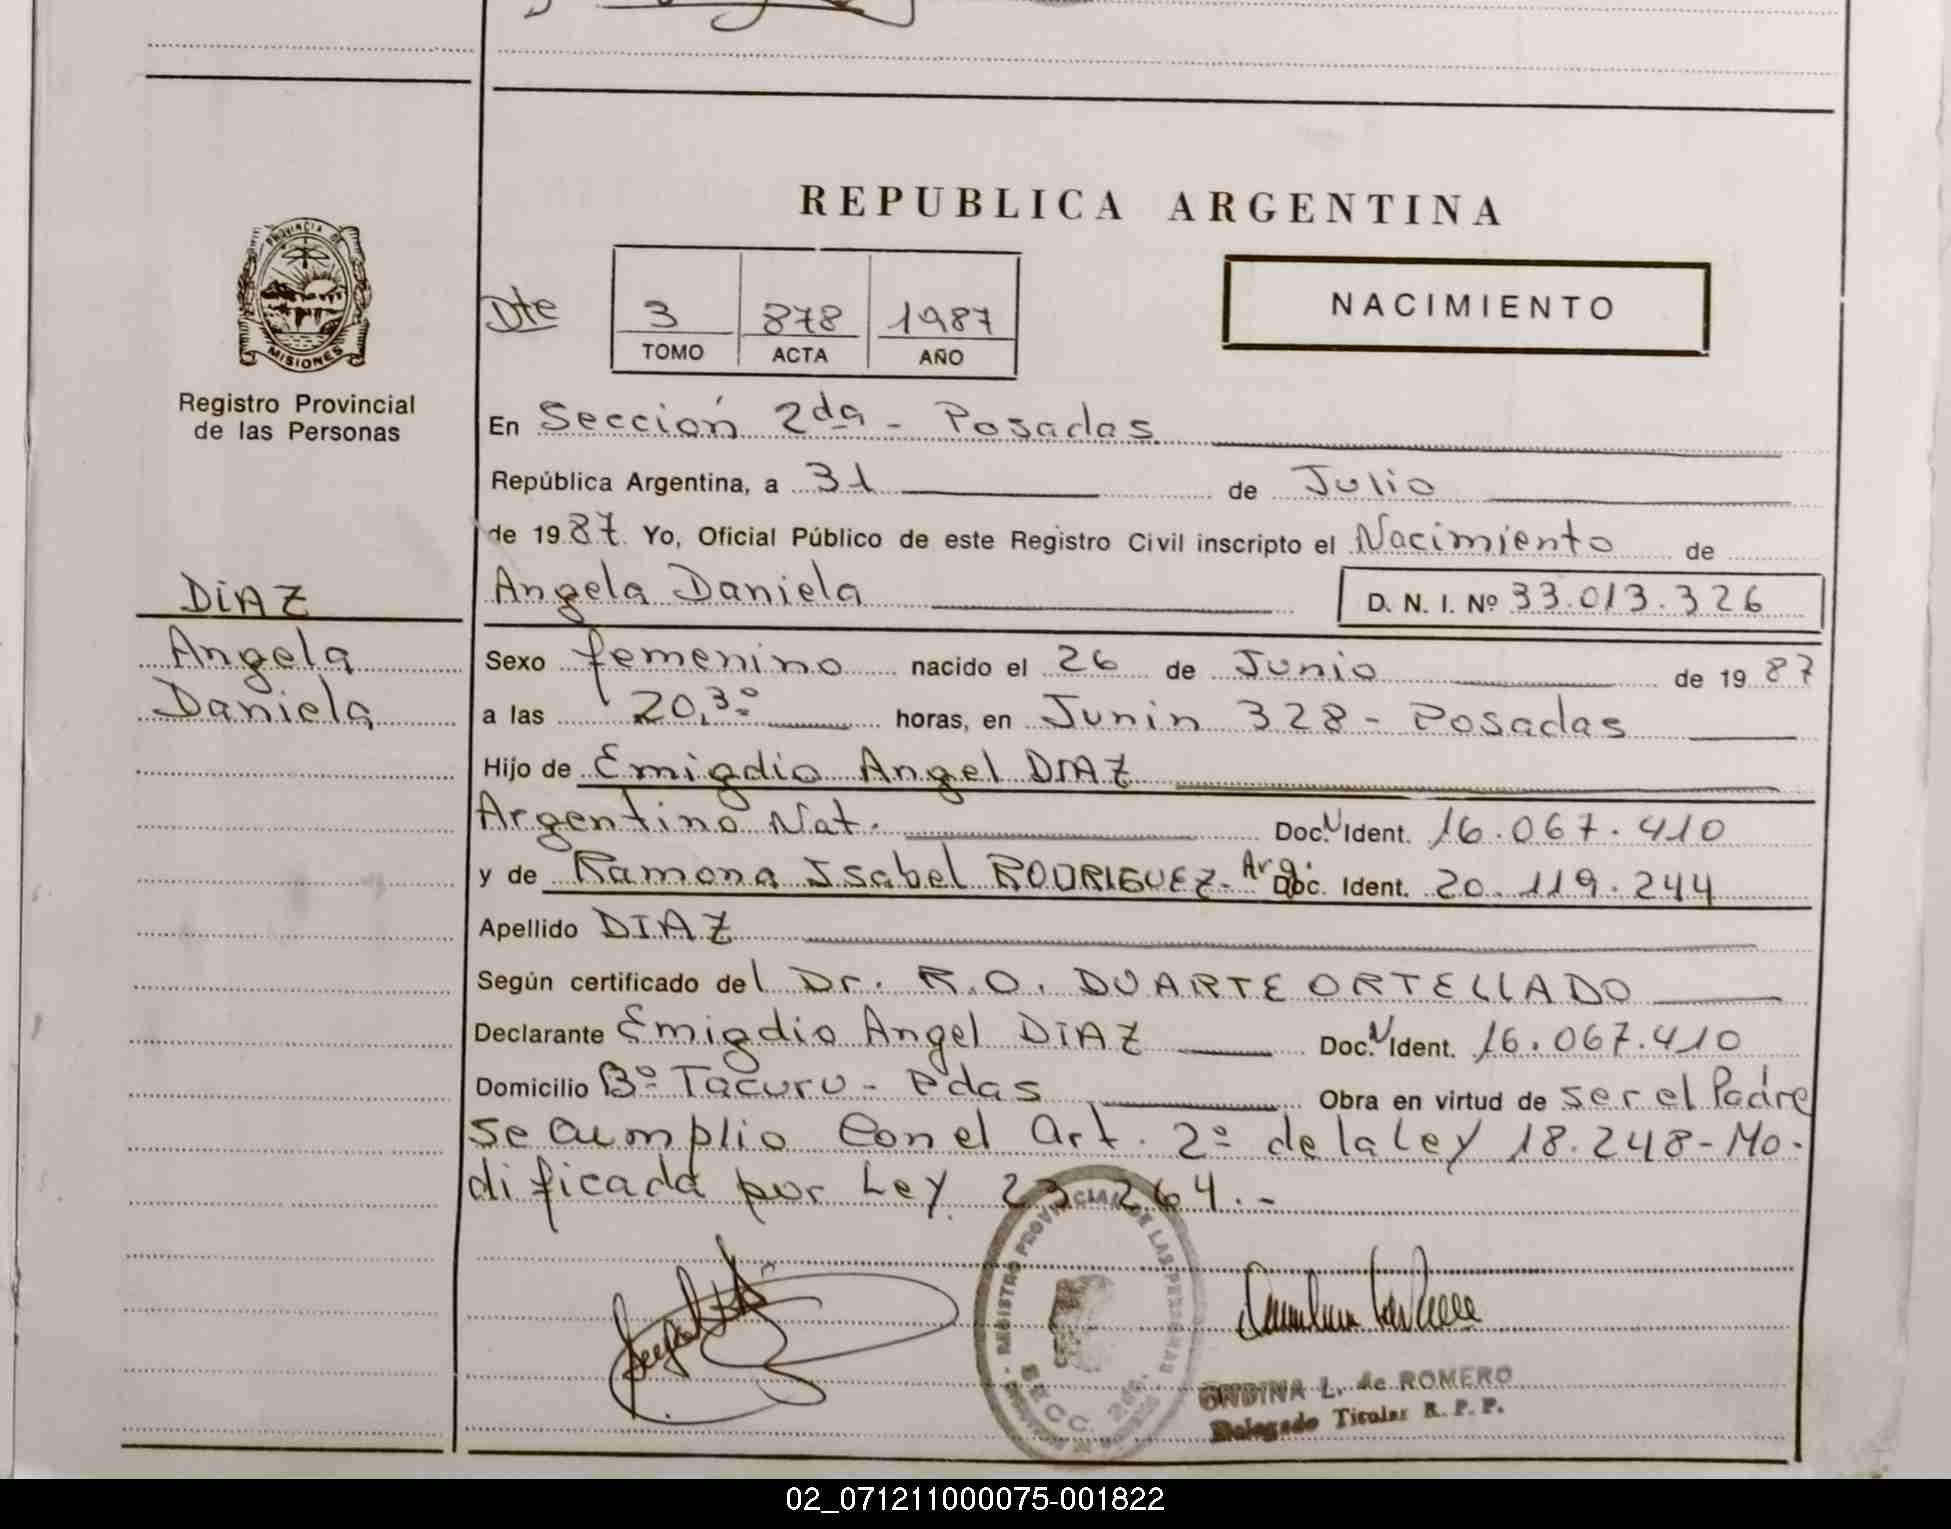 REPUBLICA ARGENTINA
PROVINCIA DE
MISIONES
Registro Provincial
de las Personas
Dte
3 878 1987
TOMO ACTA AÑO
NACIMIENTO
En Sección 2da - Posadas
República Argentina, a 31 de Julio
de 1987. Yo, Oficial Público de este Registro Civil inscripto el Nacimiento de
DiAZ
Angela
Daniela
Angela Daniela D. N. I. Nº 33.013.326
Sexo femenino nacido el 26 de Junio de 1987
a las 20,3º horas, en Junin 328 - Posadas
Hijo de Emigdio Angel DIAZ
Argentino Nat. Doc. Ident. 16.067.410
y de Ramona Isabel RODRIGUEZ - Arg. Doc. Ident. 20.119.244
Apellido DIAZ
Según certificado del Dr. R.O. DUARTE ORTELLADO
Declarante Emigdio Angel DIAZ Doc. Ident. 16.067.410
Domicilio Bº Tacuru - Pdas Obra en virtud de ser el Padre
se cumplio con el Art. 2º de la Ley 18.248 - Mo-
dificada por Ley 23.264.-
REGISTRO PROVINCIAL DE LAS PERSONAS
SECC. 2da.
ONDINA L. de ROMERO
Delegado Titular R. P. P.
02_071211000075-001822